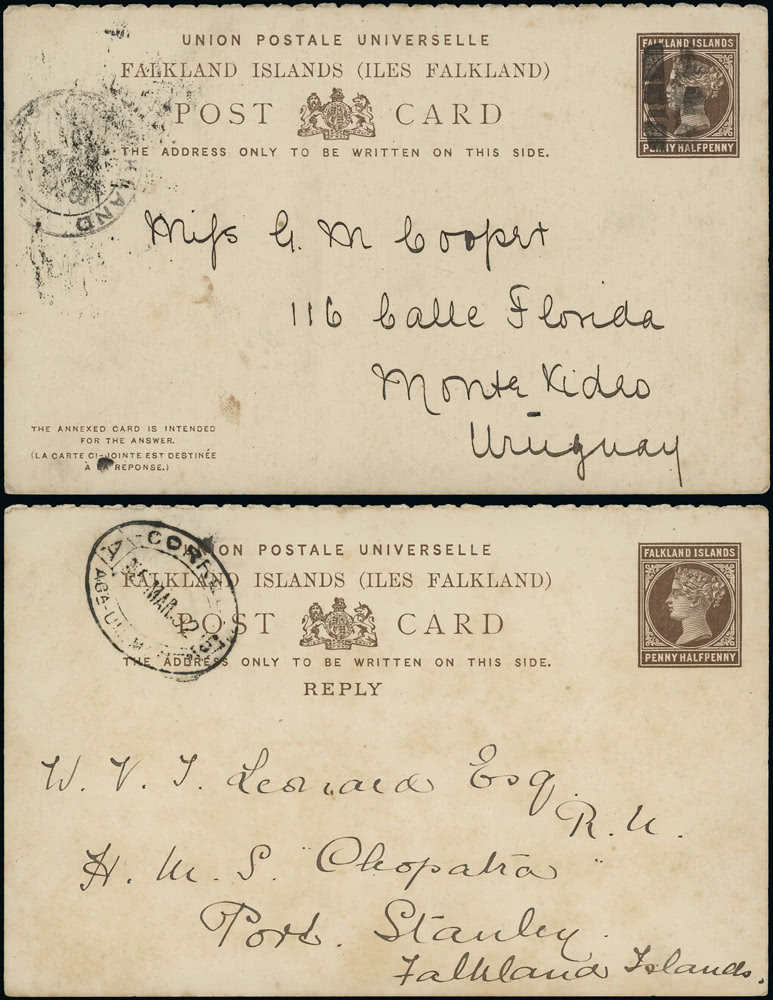 UNION POSTALE UNIVERSELLE
FALKLAND ISLANDS (ILES FALKLAND)
POST CARD
THE ADDRESS ONLY TO BE WRITTEN ON THIS SIDE.
FALKLAND ISLANDS
PENNY HALFPENNY
Miss G. M Cooper
116 Calle Florida
Monte Video
Uruguay
THE ANNEXED CARD IS INTENDED
FOR THE ANSWER.
(LA CARTE CI-JOINTE EST DESTINÉE
À LA REPONSE.)
UNION POSTALE UNIVERSELLE
FALKLAND ISLANDS (ILES FALKLAND)
POST CARD
THE ADDRESS ONLY TO BE WRITTEN ON THIS SIDE.
REPLY
FALKLAND ISLANDS
PENNY HALFPENNY
MAR. 92
W. V. J. Leonard Esq.
R. N.
H. M. S. "Cleopatra"
Port. Stanley.
Falkland Islands.